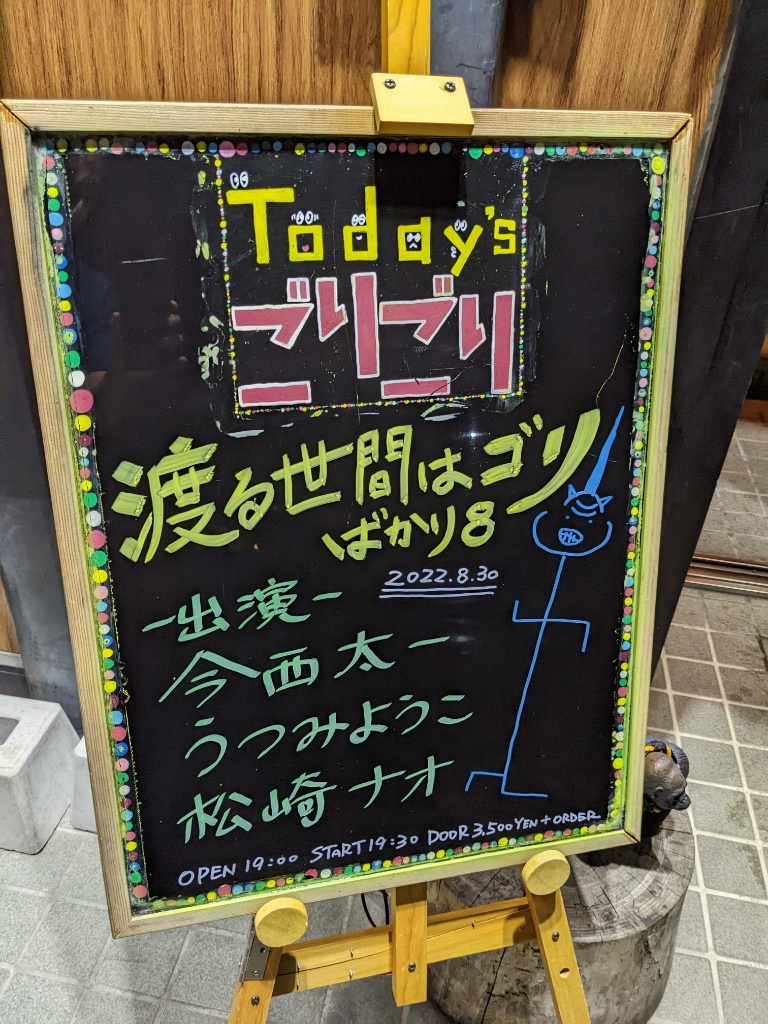 Today's
ごりごり
渡る世間はゴリ
ばかり8
2022.8.30
ー出演ー
今西太一
うつみようこ
松崎ナオ
OPEN 19:00 START 19:30 DOOR 3,500YEN+ORDER